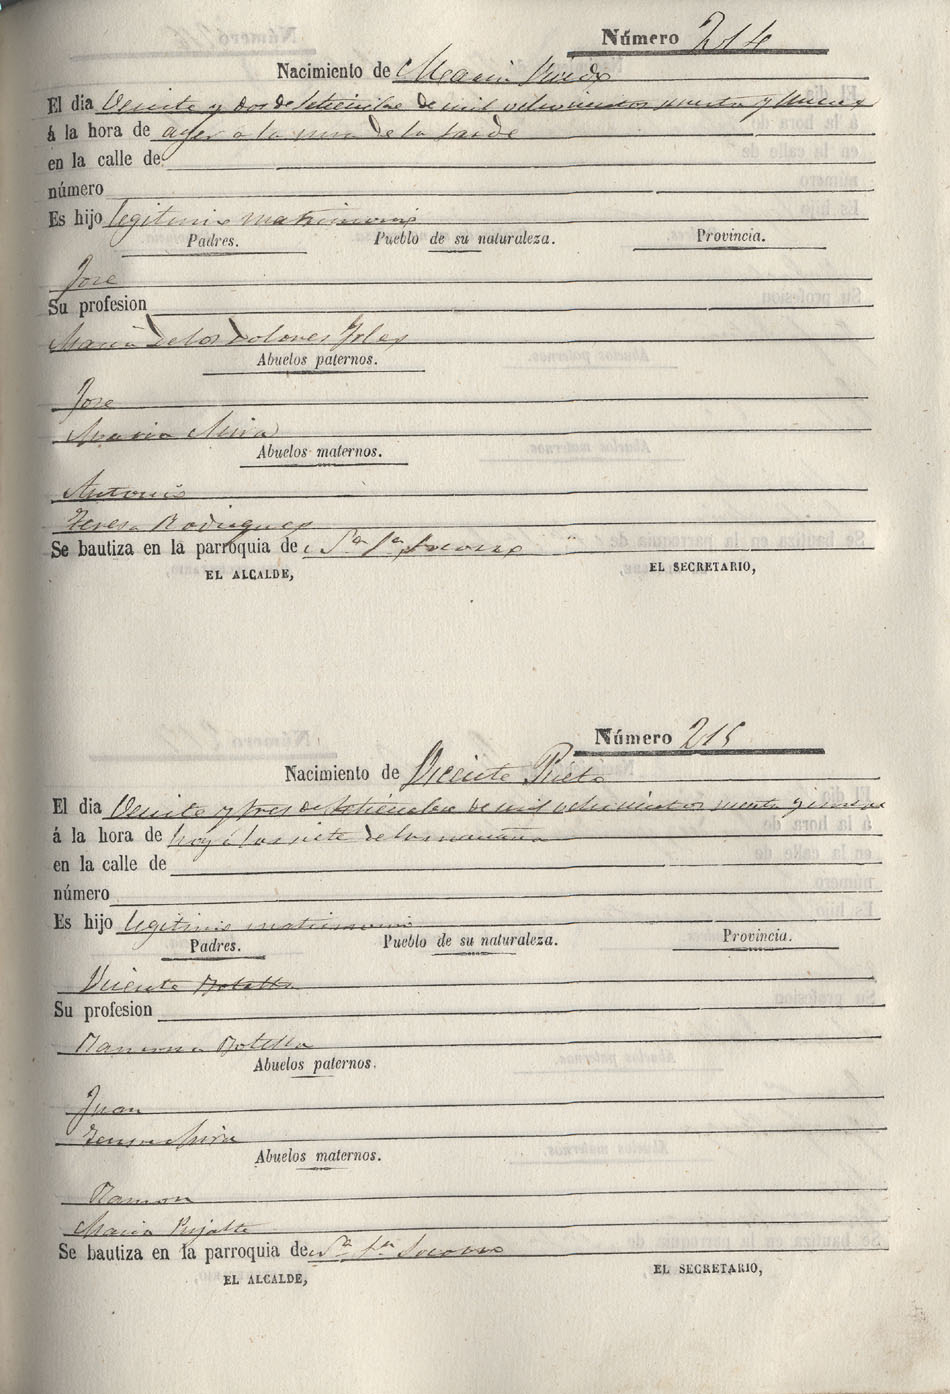 Número 214
Nacimiento de Maria
El dia Veinte y dos de Setiembre de mil ochocientos y nueve
á la hora de ayer a la una de la tarde
en la calle de
número
Es hijo legitimo matrimonio
Padres. Pueblo de su naturaleza. Provincia.
Jose
Su profesion
Maria de los Dolores Yrles
Abuelos paternos.
Jose
Maria Mira
Abuelos maternos.
Antonio
Teresa Rodriguez
Se bautiza en la parroquia de Socorro
EL ALCALDE, EL SECRETARIO,
Número 215
Nacimiento de Vicente Prieto
El dia Veinte y tres de Setiembre de mil ochocientos y nueve
á la hora de hoy a las siete de la mañana
en la calle de
número
Es hijo legitimo matrimonio
Padres. Pueblo de su naturaleza. Provincia.
Vicente Botella
Su profesion
Ramona Botella
Abuelos paternos.
Juan
Teresa Mira
Abuelos maternos.
Ramon
Maria Pujalte
Se bautiza en la parroquia de Socorro
EL ALCALDE, EL SECRETARIO,